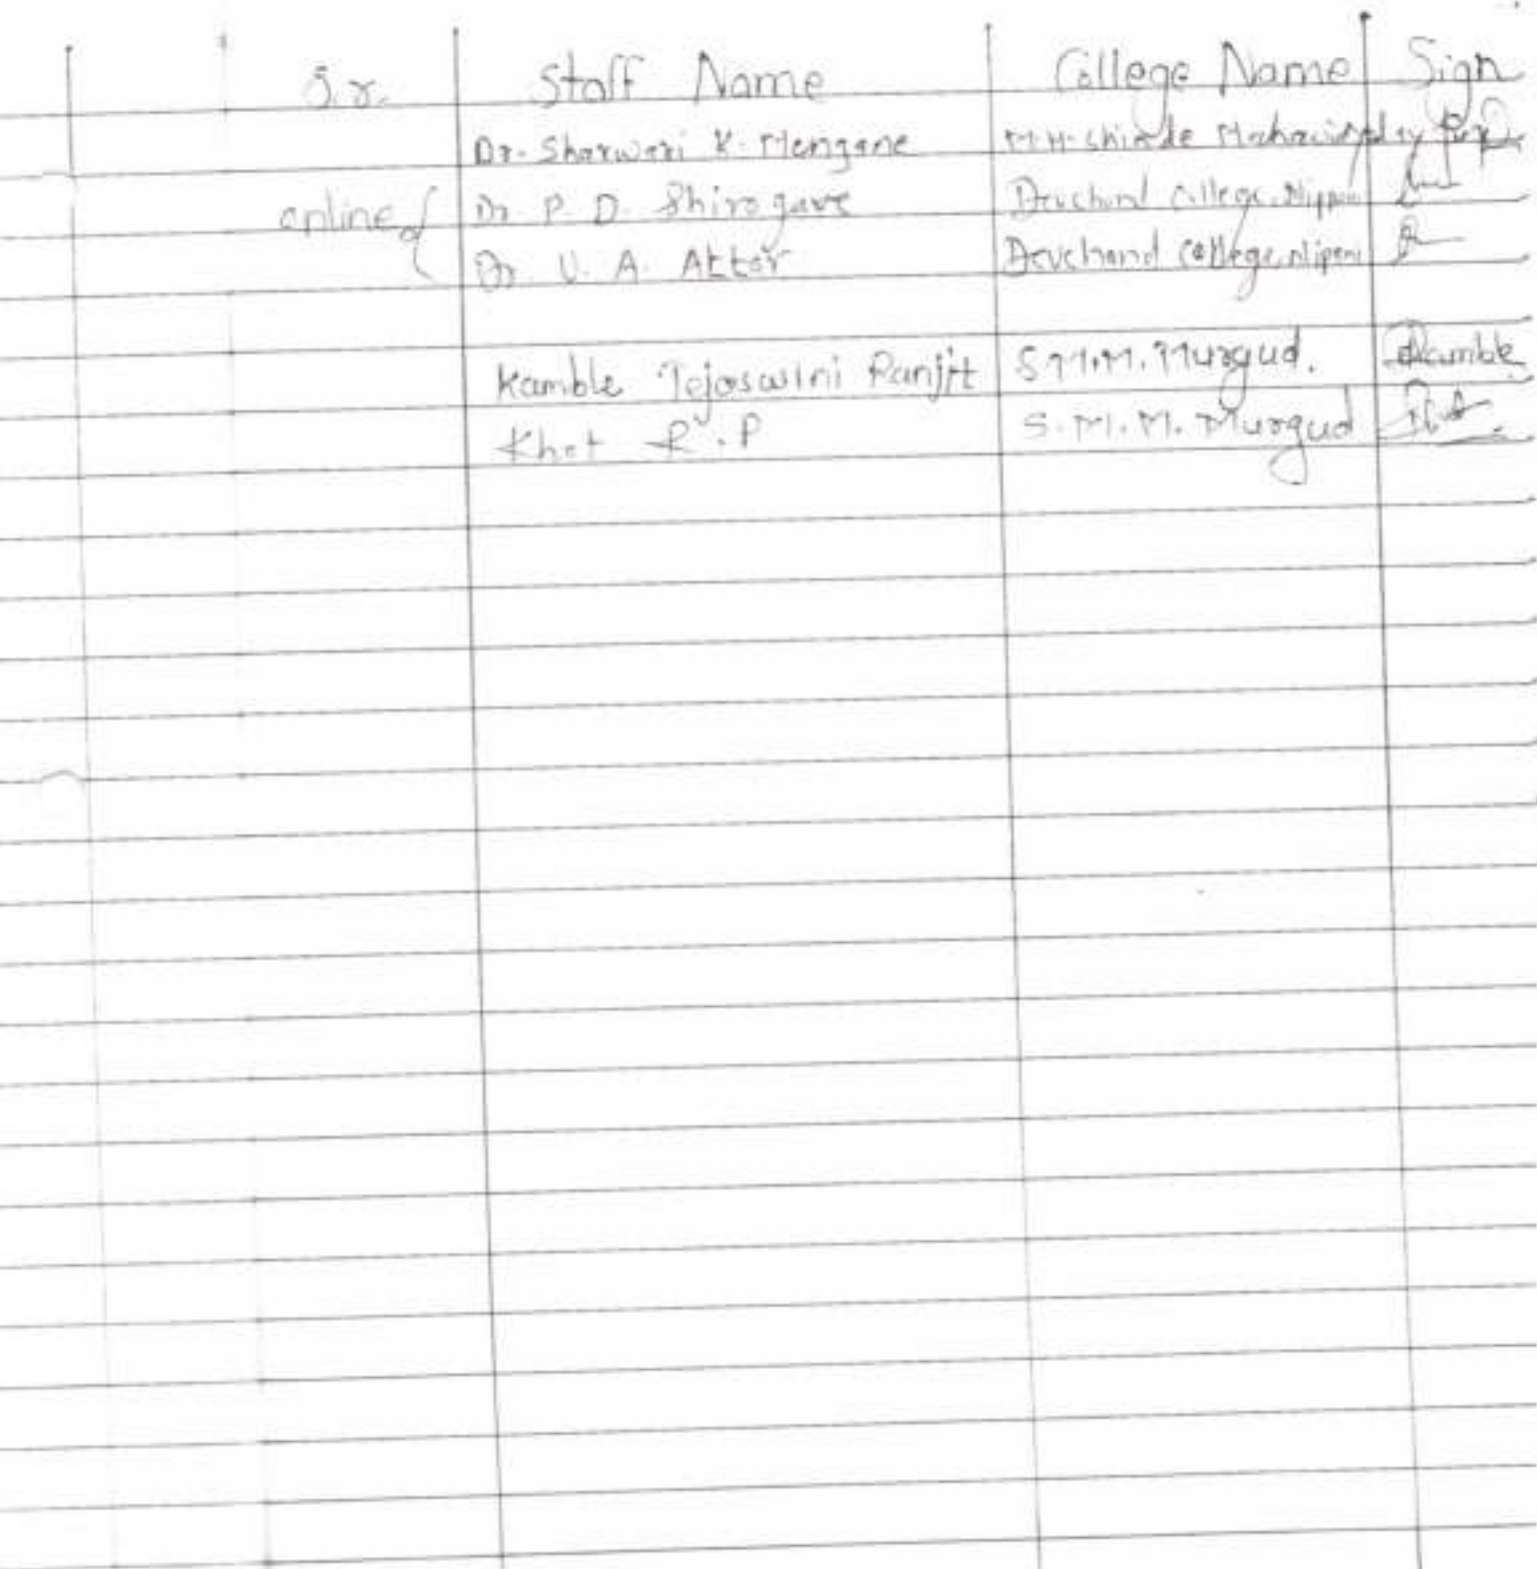 S.r. Staff Name College Name Sign
Dr. Sharwari K. Mengane M.H. Shinde Mahavidyalay
online { Dr. P. D. Shirogave Devchand College, Nippani
Dr. U. A. Attar Devchand College, Nipani
Kamble Tejaswini Ranjit S.M.M. Murgud. Kamble
Khot R.P S.M.M. Murgud